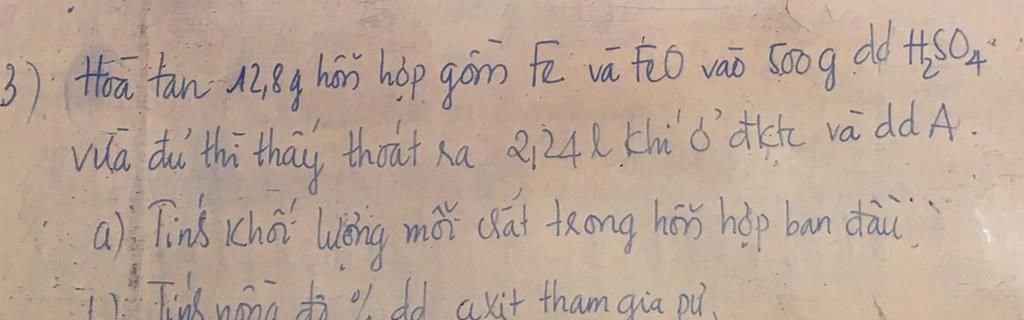 3) Hoà tan 12,8g hỗn hợp gồm Fe và FeO vào 500g dd H₂SO₄
vừa đủ thì thấy thoát ra 2,24 l khí ở đktc và dd A.
a) Tính khối lượng mỗi chất trong hỗn hợp ban đầu.
b) Tính nồng độ % dd axit tham gia pư.